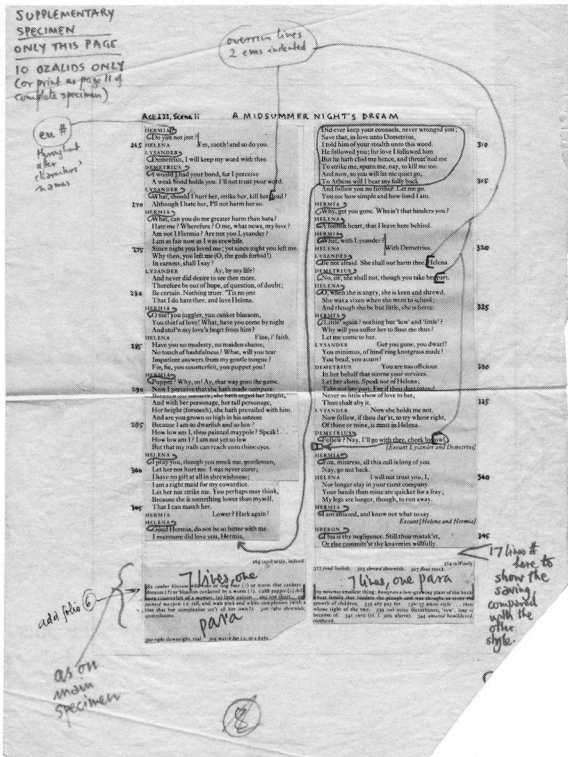 SUPPLEMENTARY
SPECIMEN
ONLY THIS PAGE
10 OZALIDS ONLY
(or print as page 11 of
complete specimen)
overrun lines
2 ems indented
en #
throughout
after
characters'
names
Act III, Scene ii A MIDSUMMER NIGHT'S DREAM
HERMIA
Do you not jest?
265 HELENA Yes, sooth! and so do you.
LYSANDER
Demetrius, I will keep my word with thee.
DEMETRIUS
I would I had your bond, for I perceive
A weak bond holds you. I'll not trust your word.
LYSANDER
What, should I hurt her, strike her, kill her dead?
270 Although I hate her, I'll not harm her so.
HERMIA
What, can you do me greater harm than hate?
Hate me? Wherefore? O me, what news, my love?
Am not I Hermia? Are not you Lysander?
I am as fair now as I was erewhile.
275 Since night you loved me; yet since night you left me.
Why then, you left me (O, the gods forbid!)
In earnest, shall I say?
LYSANDER Ay, by my life!
And never did desire to see thee more.
Therefore be out of hope, of question, of doubt;
280 Be certain. Nothing truer. 'Tis no jest
That I do hate thee, and love Helena.
HERMIA
O me! you juggler, you canker blossom,
You thief of love! What, have you come by night
And stol'n my love's heart from him?
HELENA Fine, i' faith.
285 Have you no modesty, no maiden shame,
No touch of bashfulness? What, will you tear
Impatient answers from my gentle tongue?
Fie, fie, you counterfeit, you puppet you!
HERMIA
Puppet? Why, so! Ay, that way goes the game.
290 Now I perceive that she hath made compare
Between our statures; she hath urged her height,
And with her personage, her tall personage,
Her height (forsooth), she hath prevailed with him.
And are you grown so high in his esteem
295 Because I am so dwarfish and so low?
How low am I, thou painted maypole? Speak!
How low am I? I am not yet so low
But that my nails can reach unto thine eyes.
HELENA
I pray you, though you mock me, gentlemen,
300 Let her not hurt me. I was never curst;
I have no gift at all in shrewishness;
I am a right maid for my cowardice.
Let her not strike me. You perhaps may think,
Because she is something lower than myself,
305 That I can match her.
HERMIA Lower? Hark again!
HELENA
Good Hermia, do not be so bitter with me.
I evermore did love you, Hermia,
7 lines, one
para
add folio 6
as on
main
specimen
302 right downright, real
Did ever keep your counsels, never wronged you;
Save that, in love unto Demetrius,
310 I told him of your stealth unto this wood.
He followed you; for love I followed him
But he hath chid me hence, and threat'ned me
To strike me, spurn me, nay, to kill me too.
And now, so you will let me quiet go,
315 To Athens will I bear my folly back
And follow you no further. Let me go.
You see how simple and how fond I am.
HERMIA
Why, get you gone. Who is't that hinders you?
HELENA
A foolish heart, that I leave here behind.
HERMIA
What, with Lysander?
320 HELENA With Demetrius.
LYSANDER
Be not afraid. She shall not harm thee, Helena.
DEMETRIUS
No, sir, she shall not, though you take her part.
HELENA
O, when she is angry, she is keen and shrewd.
She was a vixen when she went to school;
325 And though she be but little, she is fierce.
HERMIA
'Little' again? nothing but 'low' and 'little'?
Why will you suffer her to flout me thus?
Let me come to her.
LYSANDER Get you gone, you dwarf!
You minimus, of hind'ring knotgrass made!
You bead, you acorn!
330 DEMETRIUS You are too officious
In her behalf that scorns your services.
Let her alone. Speak not of Helena;
Take not her part. For if thou dost intend
Never so little show of love to her,
335 Thou shalt aby it.
LYSANDER Now she holds me not.
Now follow, if thou dar'st, to try whose right,
Of thine or mine, is most in Helena.
DEMETRIUS
Follow? Nay, I'll go with thee, cheek by jowl.
[Exeunt Lysander and Demetrius]
HERMIA
You, mistress, all this coil is long of you.
Nay, go not back.
340 HELENA I will not trust you, I,
Nor longer stay in your curst company.
Your hands than mine are quicker for a fray;
My legs are longer, though, to run away.
HERMIA
I am amazed, and know not what to say.
Exeunt [Helena and Hermia]
OBERON
345 This is thy negligence. Still thou mistak'st,
Or else committ'st thy knaveries willfully.
17 lines #
here to
show the
saving
compared
with the
other
style.
317 fond foolish. 323 shrewd shrewish. 327 flout mock.
7 lines, one para
8